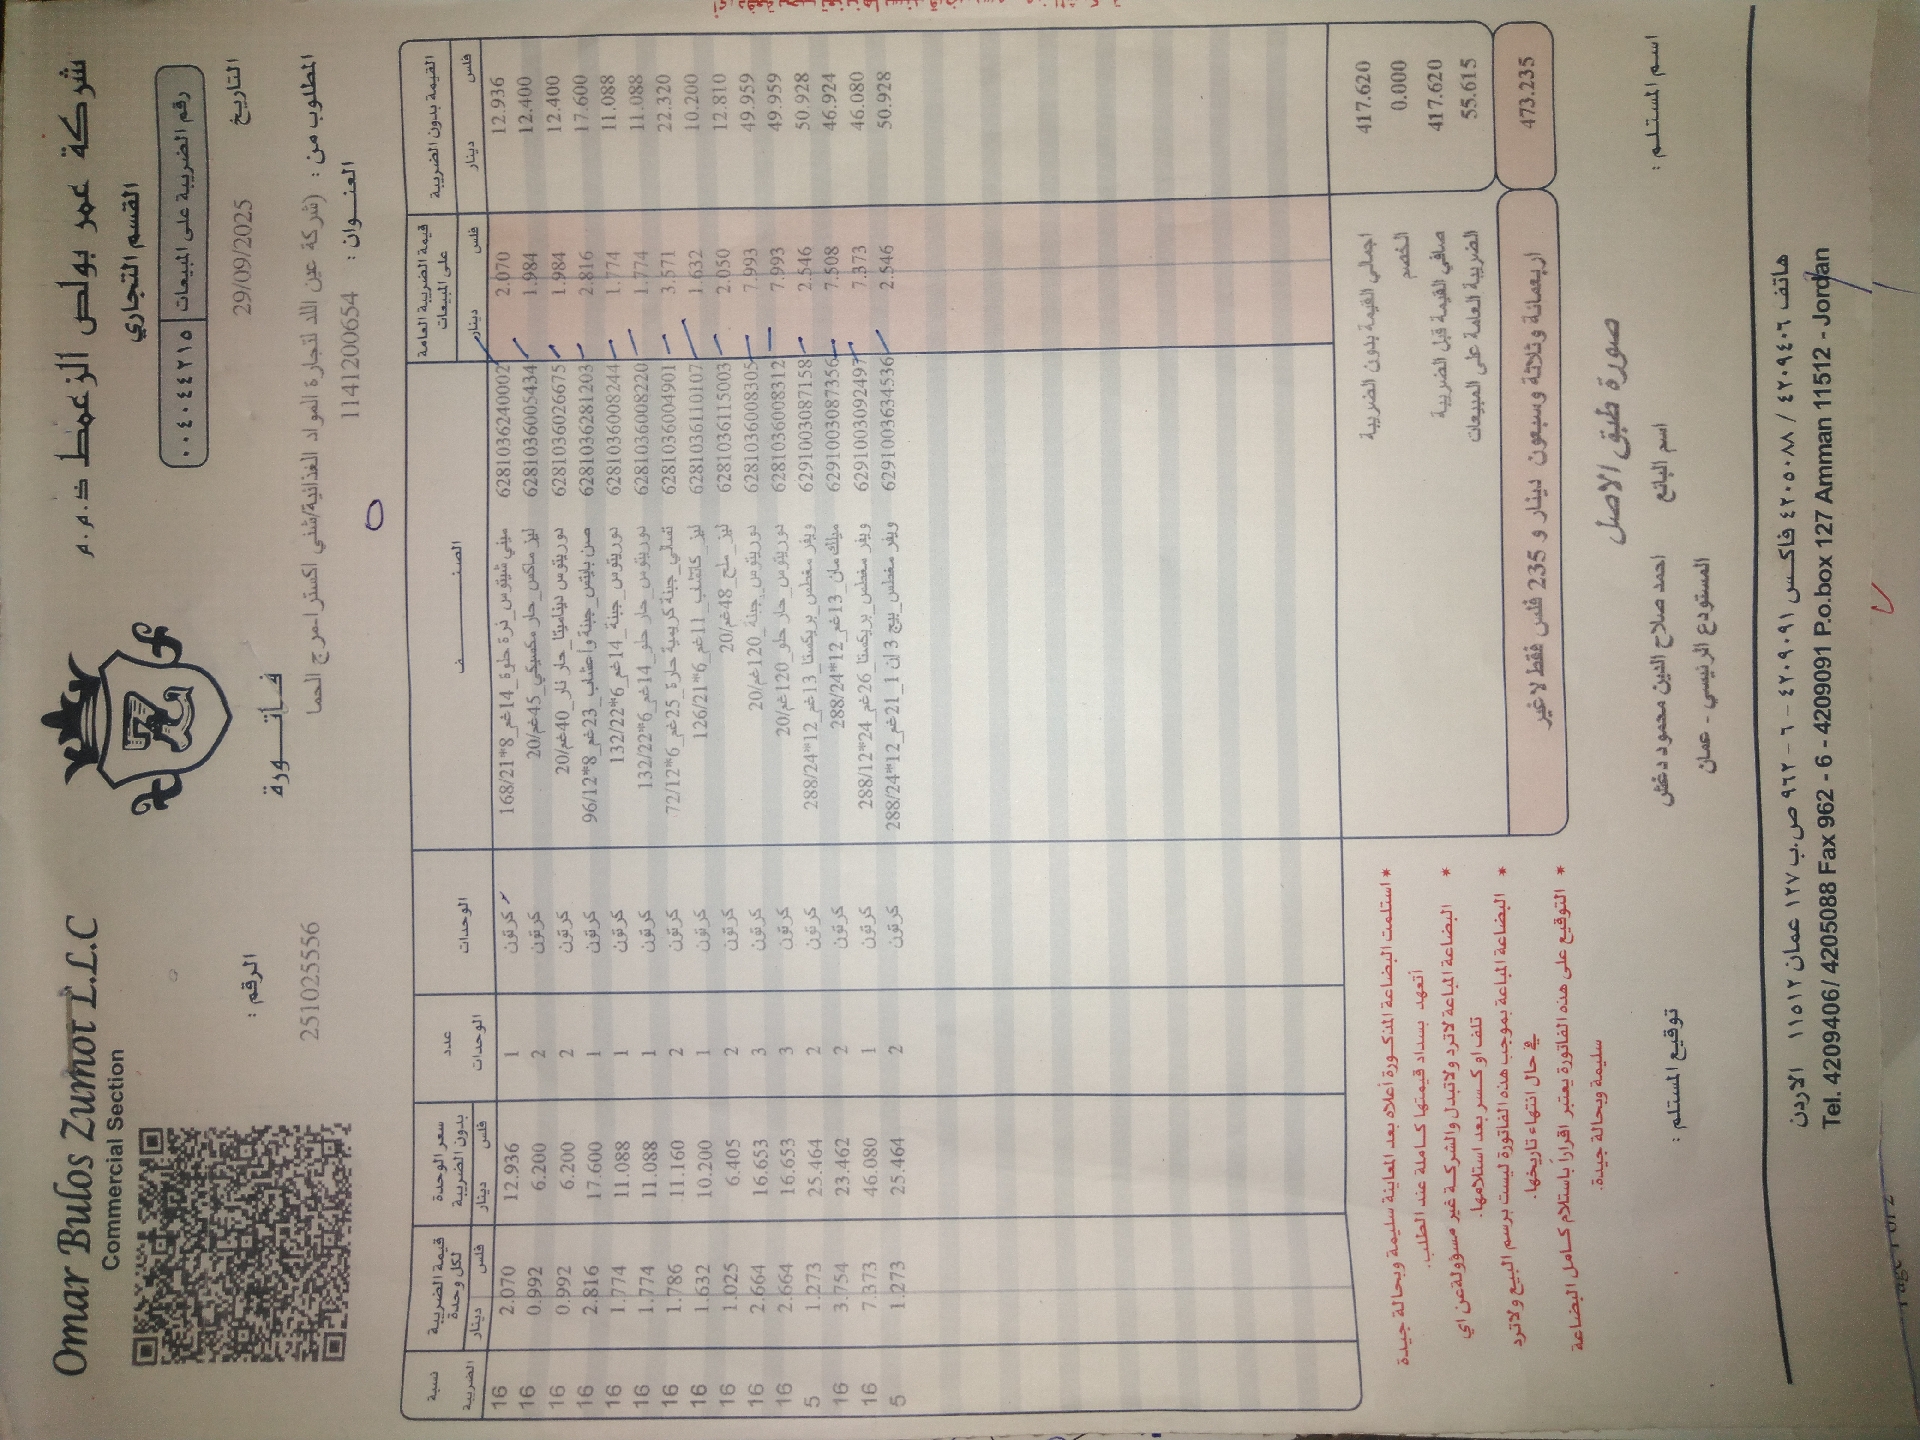 Omar Bulos Zumot L.L.C
Commercial Section
شركة عمر بولص الزعمط ذ.م.م
القسم التجاري
رقم الضريبة على المبيعات ٠٠٤٠٤٤٢١٥
فـاتـــورة
التاريخ
29/09/2025
الرقم :
251025556
المطلوب من : (شركة عين اللد لتجارة المواد الغذائية/شني اكسترا-مرج الحما
العنـــوان : 1141200654
القيمة بدون الضريبة دينار فلس | قيمة الضريبة العامة على المبيعات دينار فلس | الصنـــــف | الوحدات | عدد الوحدات | سعر الوحدة بدون الضريبة دينار فلس | قيمة الضريبة لكل وحدة دينار فلس | نسبة الضريبة
12.936 2.070 6281036240002 ميني شيتوس_ذرة حلوة_14غم_8*168/21 كرتون 1 12.936 2.070 16
12.400 1.984 6281036005434 ليز ماكس_حار مكسيكي_45غم/20 كرتون 2 6.200 0.992 16
12.400 1.984 6281036026675 دوريتوس ديناميتا_حار نار_40غم/20 كرتون 2 6.200 0.992 16
17.600 2.816 6281036281203 صن بايتس_جبنة واعشاب_23غم_8*96/12 كرتون 1 17.600 2.816 16
11.088 1.774 6281036008244 دوريتوس_جبنة_14غم_6*132/22 كرتون 1 11.088 1.774 16
11.088 1.774 6281036008220 دوريتوس_حار حلو_14غم_6*132/22 كرتون 1 11.088 1.774 16
22.320 3.571 6281036004901 تسالي_جبنة كريمية حارة_25غم_6*72/12 كرتون 2 11.160 1.786 16
10.200 1.632 6281036110107 ليز_كاتشب_11غم_6*126/21 كرتون 1 10.200 1.632 16
12.810 2.050 6281036115003 ليز_ملح_48غم/20 كرتون 2 6.405 1.025 16
49.959 7.993 6281036008305 دوريتوس_جبنة_120غم/20 كرتون 3 16.653 2.664 16
49.959 7.993 6281036008312 دوريتوس_حار حلو_120غم/20 كرتون 3 16.653 2.664 16
50.928 2.546 6291003087158 ويفر مغطس_بريكستا_13غم_12*288/24 كرتون 2 25.464 1.273 5
46.924 7.508 6291003087356 ميلك مان_13غم_12*288/24 كرتون 2 23.462 3.754 16
46.080 7.373 6291003092497 ويفر مغطس_بريكستا_26غم_24*288/12 كرتون 1 46.080 7.373 16
50.928 2.546 6291003634536 ويفر مغطس_بيج 3 ان 1_21غم_12*288/24 كرتون 2 25.464 1.273 5
اجمالي القيمة بدون الضريبة 417.620
الخصم 0.000
صافي القيمة قبل الضريبة 417.620
الضريبة العامة على المبيعات 55.615
اربعمائة وثلاثة وسبعون دينار و 235 فلس فقط لا غير 473.235
* استلمت البضاعة المذكورة أعلاه بعد المعاينة سليمة وبحالة جيدة
أتعهد بسداد قيمتها كاملة عند الطلب.
* البضاعة المباعة لاترد ولاتبدل والشركة غير مسؤولة عن اي
تلف او كسر بعد استلامها.
* البضاعة المباعة بموجب هذه الفاتورة ليست برسم البيع ولاترد
في حال انتهاء تاريخها.
* التوقيع على هذه الفاتورة يعتبر اقراراً باستلام كامل البضاعة
سليمة وبحالة جيدة.
صورة طبق الاصل
اسم المستلم :
اسم البائع
احمد صلاح الدين محمود دغش
المستودع الرئيسي - عمان
توقيع المستلم :
هاتف ٤٢٠٩٤٠٦ / ٤٢٠٥٠٨٨ فاكس ٤٢٠٩٠٩١ - ٦ - ٩٦٢ ص.ب ١٢٧ عمان ١١٥١٢ الاردن
Tel. 4209406/ 4205088 Fax 962 - 6 - 4209091 P.o.box 127 Amman 11512 - Jordan